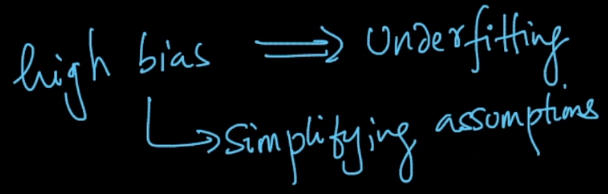 high bias ⟹ Underfitting
↳ simplifying assumptions